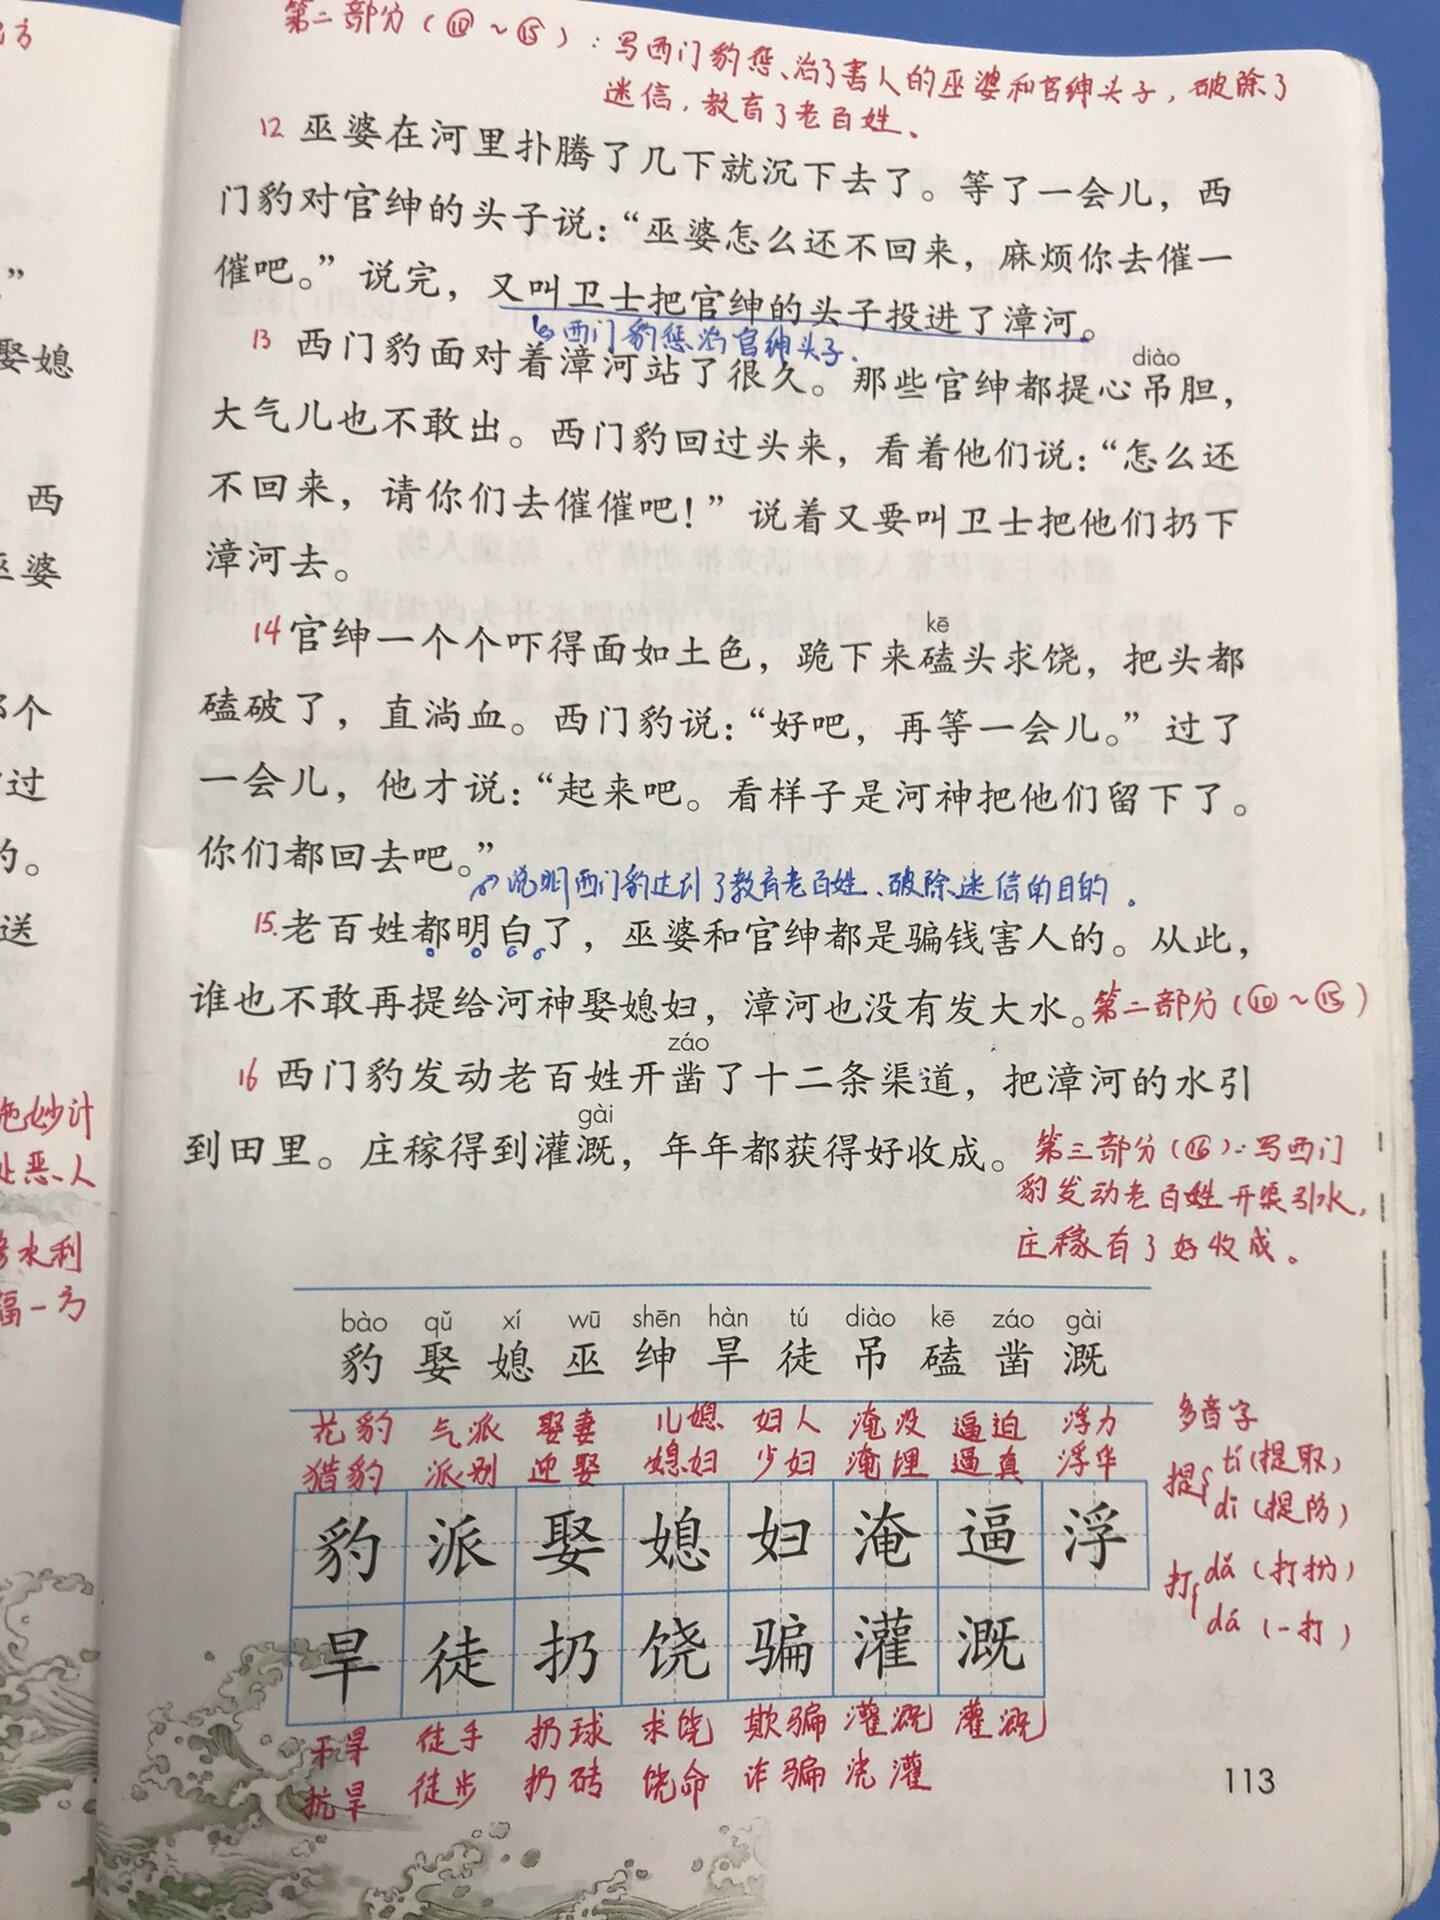 第二部分(⑩~⑮):写西门豹惩治了害人的巫婆和官绅头子,破除了
迷信,教育了老百姓、
12 巫婆在河里扑腾了几下就沉下去了。等了一会儿,西
门豹对官绅的头子说:“巫婆怎么还不回来,麻烦你去催一
催吧。”说完,又叫卫士把官绅的头子投进了漳河。
西门豹惩治官绅头子.
diào
13 西门豹面对着漳河站了很久。那些官绅都提心吊胆,
大气儿也不敢出。西门豹回过头来,看着他们说:“怎么还
不回来,请你们去催催吧!”说着又要叫卫士把他们扔下
漳河去。
kē
14 官绅一个个吓得面如土色,跪下来磕头求饶,把头都
磕破了,直淌血。西门豹说:“好吧,再等一会儿。”过了
一会儿,他才说:“起来吧。看样子是河神把他们留下了。
你们都回去吧。”
说明西门豹达到了教育老百姓、破除迷信的目的.
15.老百姓都明白了,巫婆和官绅都是骗钱害人的。从此,
谁也不敢再提给河神娶媳妇,漳河也没有发大水。第二部分(⑩~⑮)
záo
16 西门豹发动老百姓开凿了十二条渠道,把漳河的水引
gài
到田里。庄稼得到灌溉,年年都获得好收成。
第三部分(⑯):写西门
豹发动老百姓开渠引水,
庄稼有了好收成。
bào qǔ xí wū shēn hàn tú diào kē záo gài
豹 娶 媳 巫 绅 旱 徒 吊 磕 凿 溉
花豹 气派 娶妻 儿媳 妇人 淹没 逼迫 浮力
猎豹 派别 迎娶 媳妇 少妇 淹埋 逼真 浮华
豹 派 娶 媳 妇 淹 逼 浮
旱 徒 扔 饶 骗 灌 溉
干旱 徒手 扔球 求饶 欺骗 灌溉 灌溉
抗旱 徒步 扔砖 饶命 诈骗 浇灌
多音字
提{tí(提取)
dī(提防)
打{dǎ(打扮)
dá(一打)
113
方
”
娶媳
西
巫婆
个
过
的。
送
施妙计
处恶人
水利
福一方